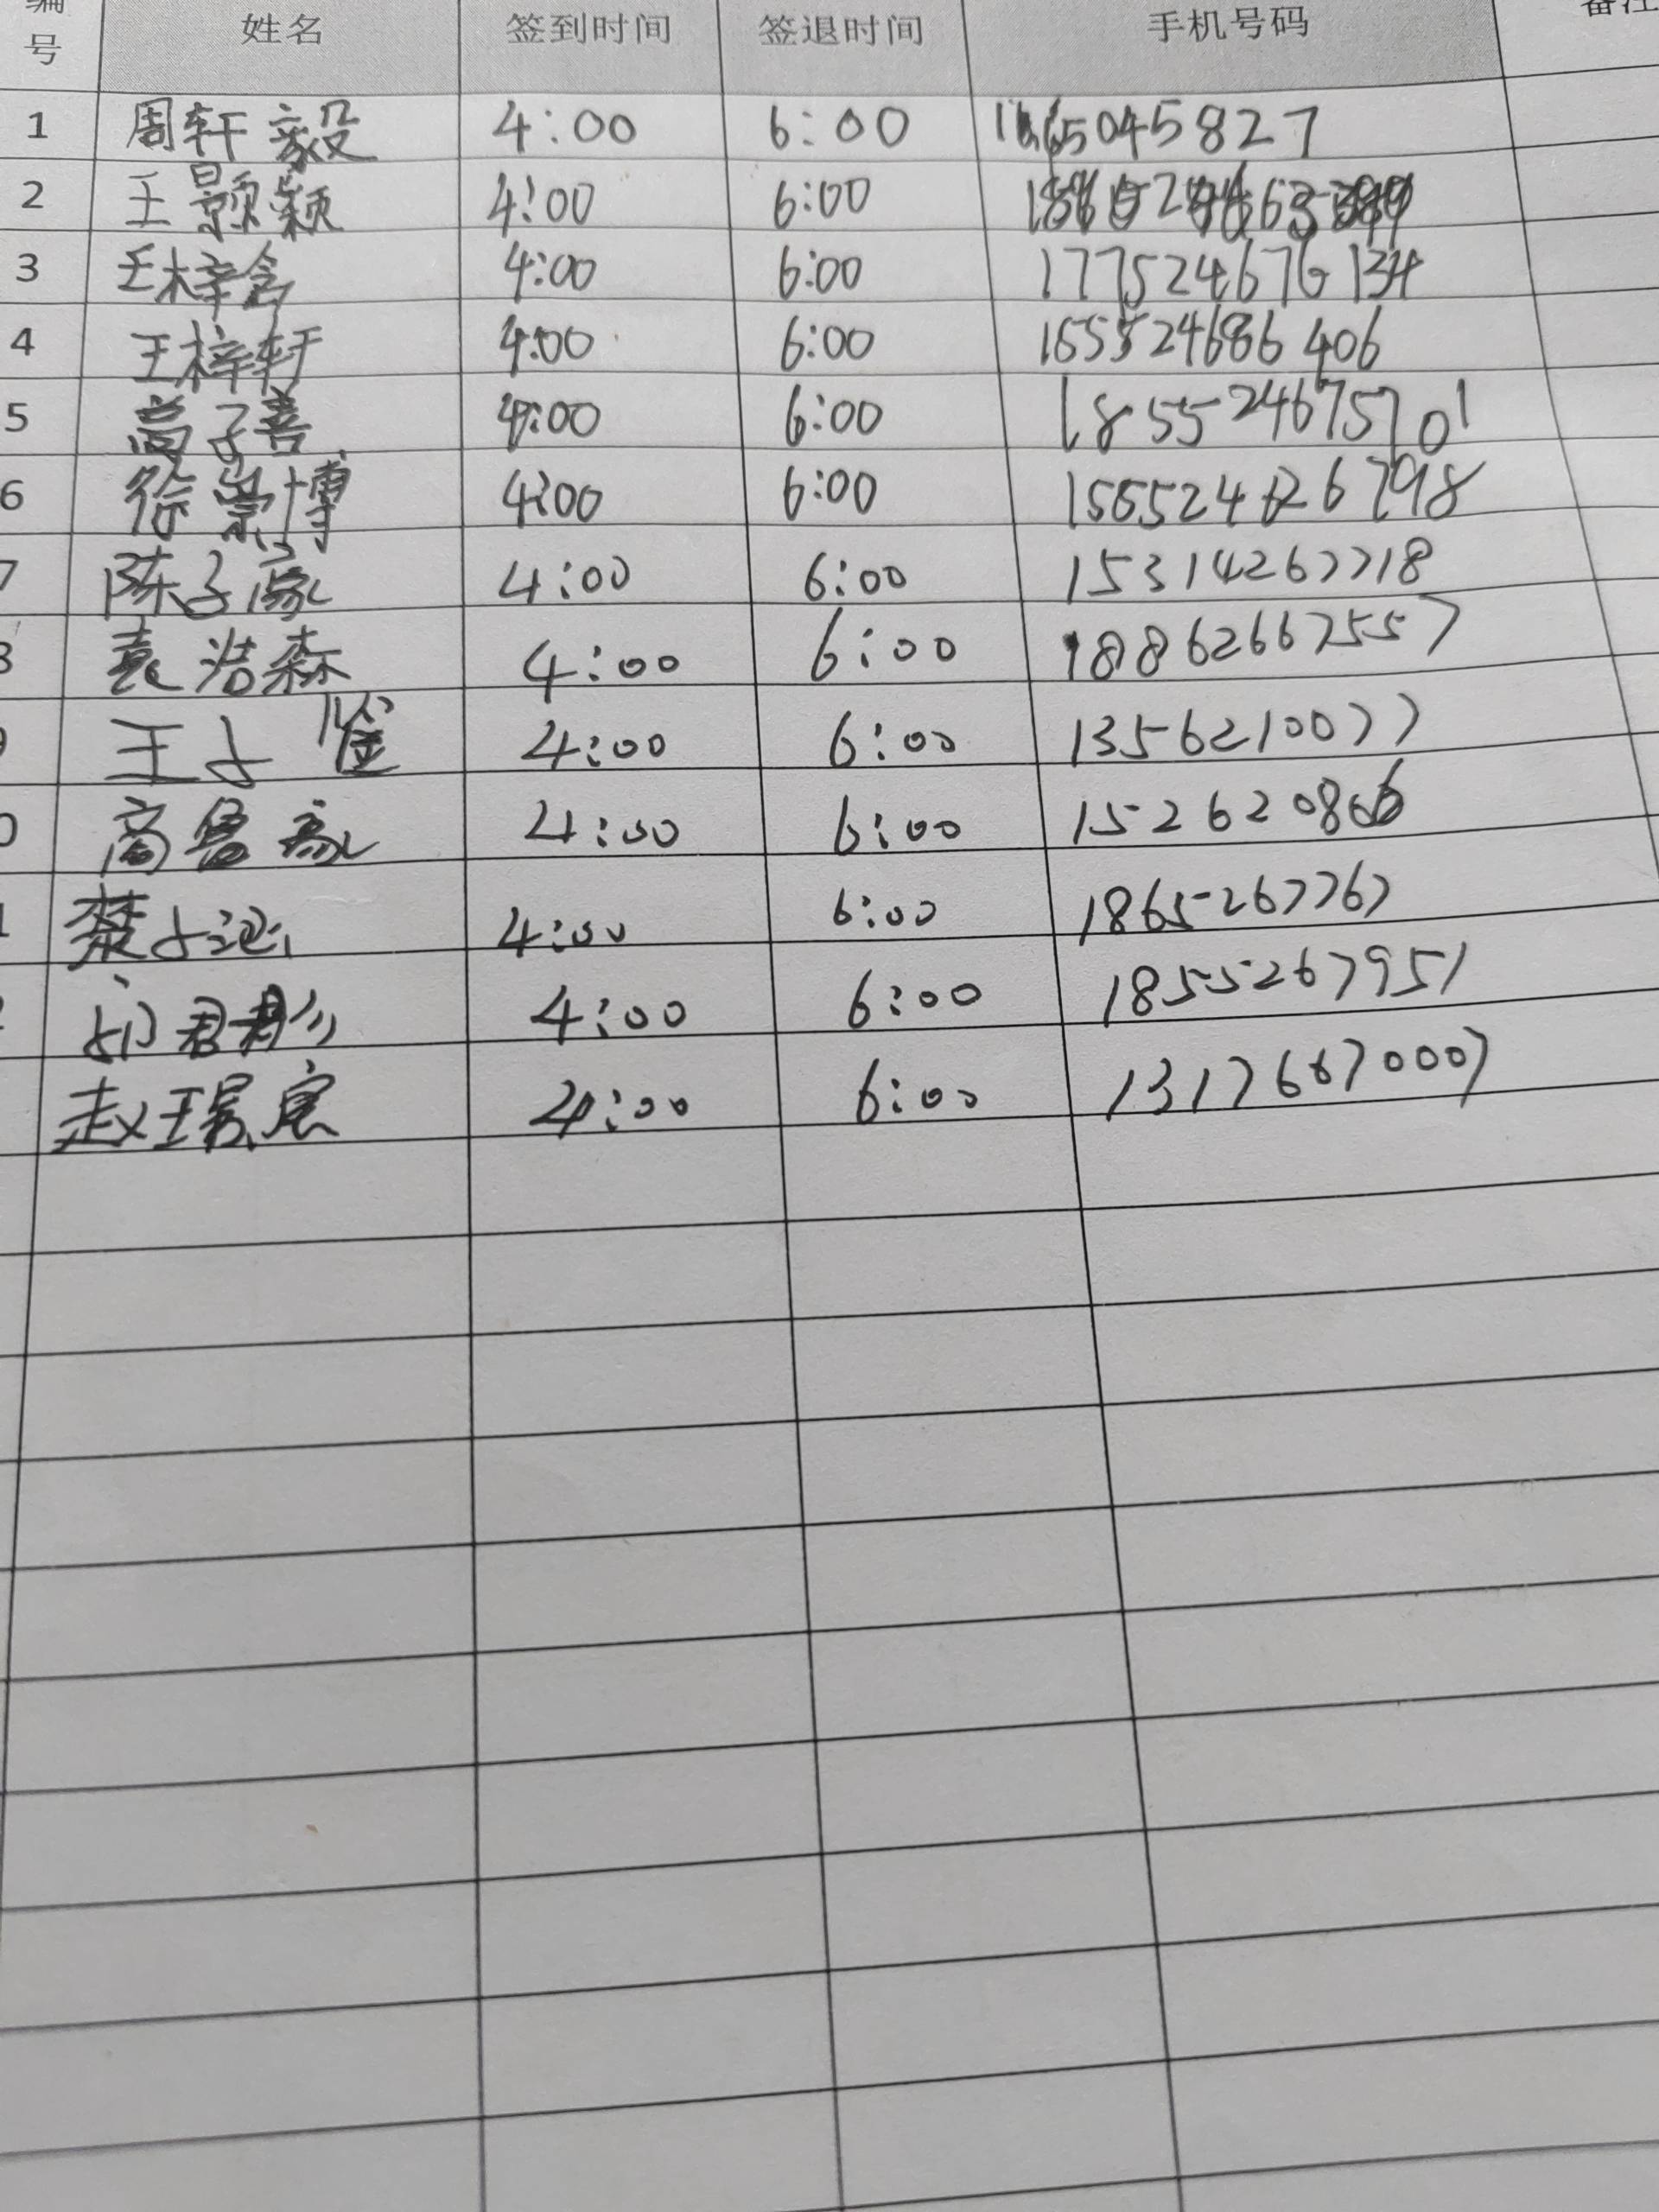 编号 姓名 签到时间 签退时间 手机号码 备注
1 周轩毅 4:00 6:00 65045827
2 王颢颖 4:00 6:00
3 王梓含 4:00 6:00 177524676134
4 王梓轩 4:00 6:00 165524686406
5 子善 4:00 6:00 185524675701
6 徐崇博 4:00 6:00
7 陈子豪 4:00 6:00 15314267718
袁浩森 4:00 6:00 18862667557
王 4:00 6:00 1356210077
商鲁豪 4:00 6:00
楚 4:00 6:00 1865267767
君彭 4:00 6:00 1855267951
赵 4:00 6:00 13176670007